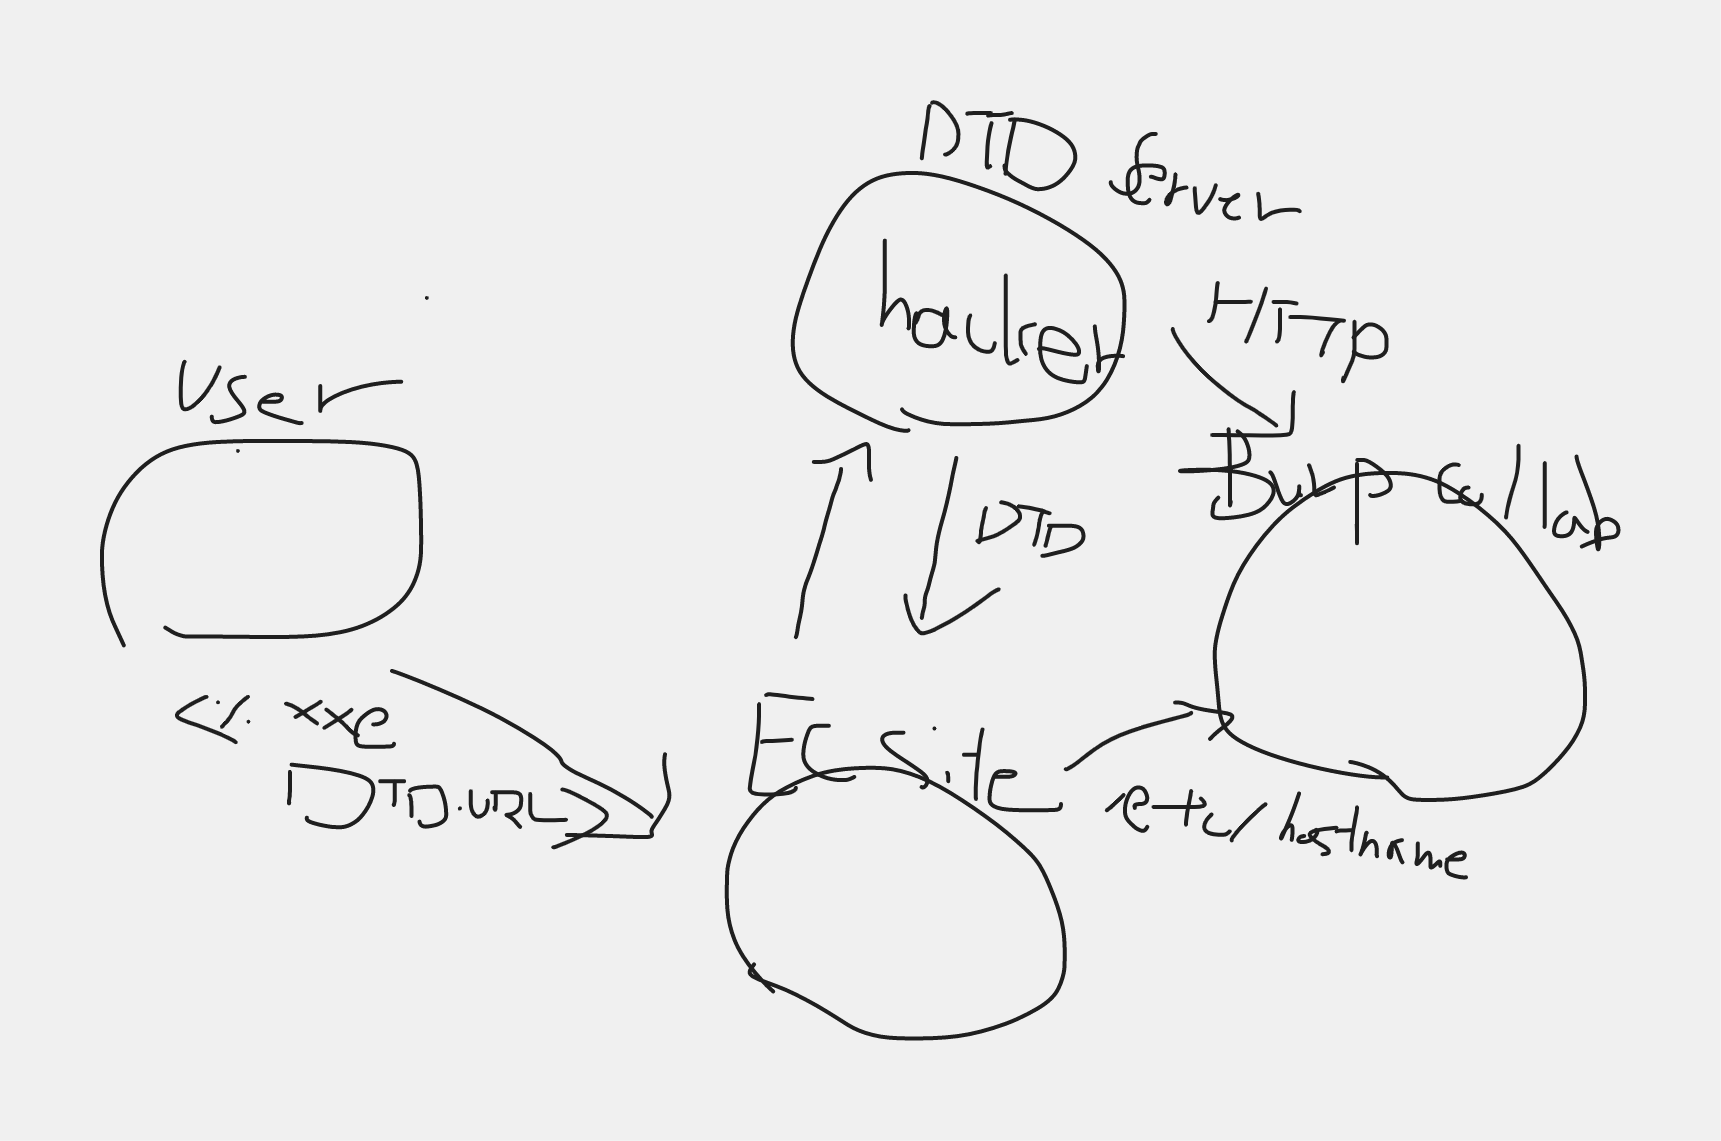 DTD Server
hacker
HTTP
User
Burp collab
DTD
<% xxe
DTD.URL>
EC site
/etc/hostname